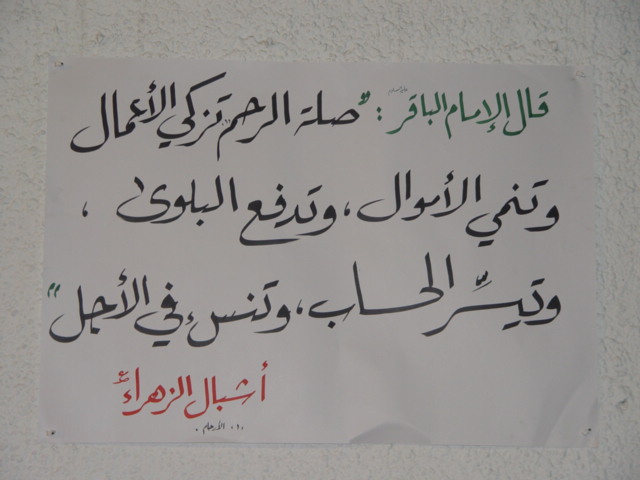 قال الإمام الباقر : "صلة الرحم تزكي الأعمال
وتنمي الأموال ، وتدفع البلوى ،
وتيسِّر الحساب ، وتنسئ في الأجل"
أشبال الزهراء ع